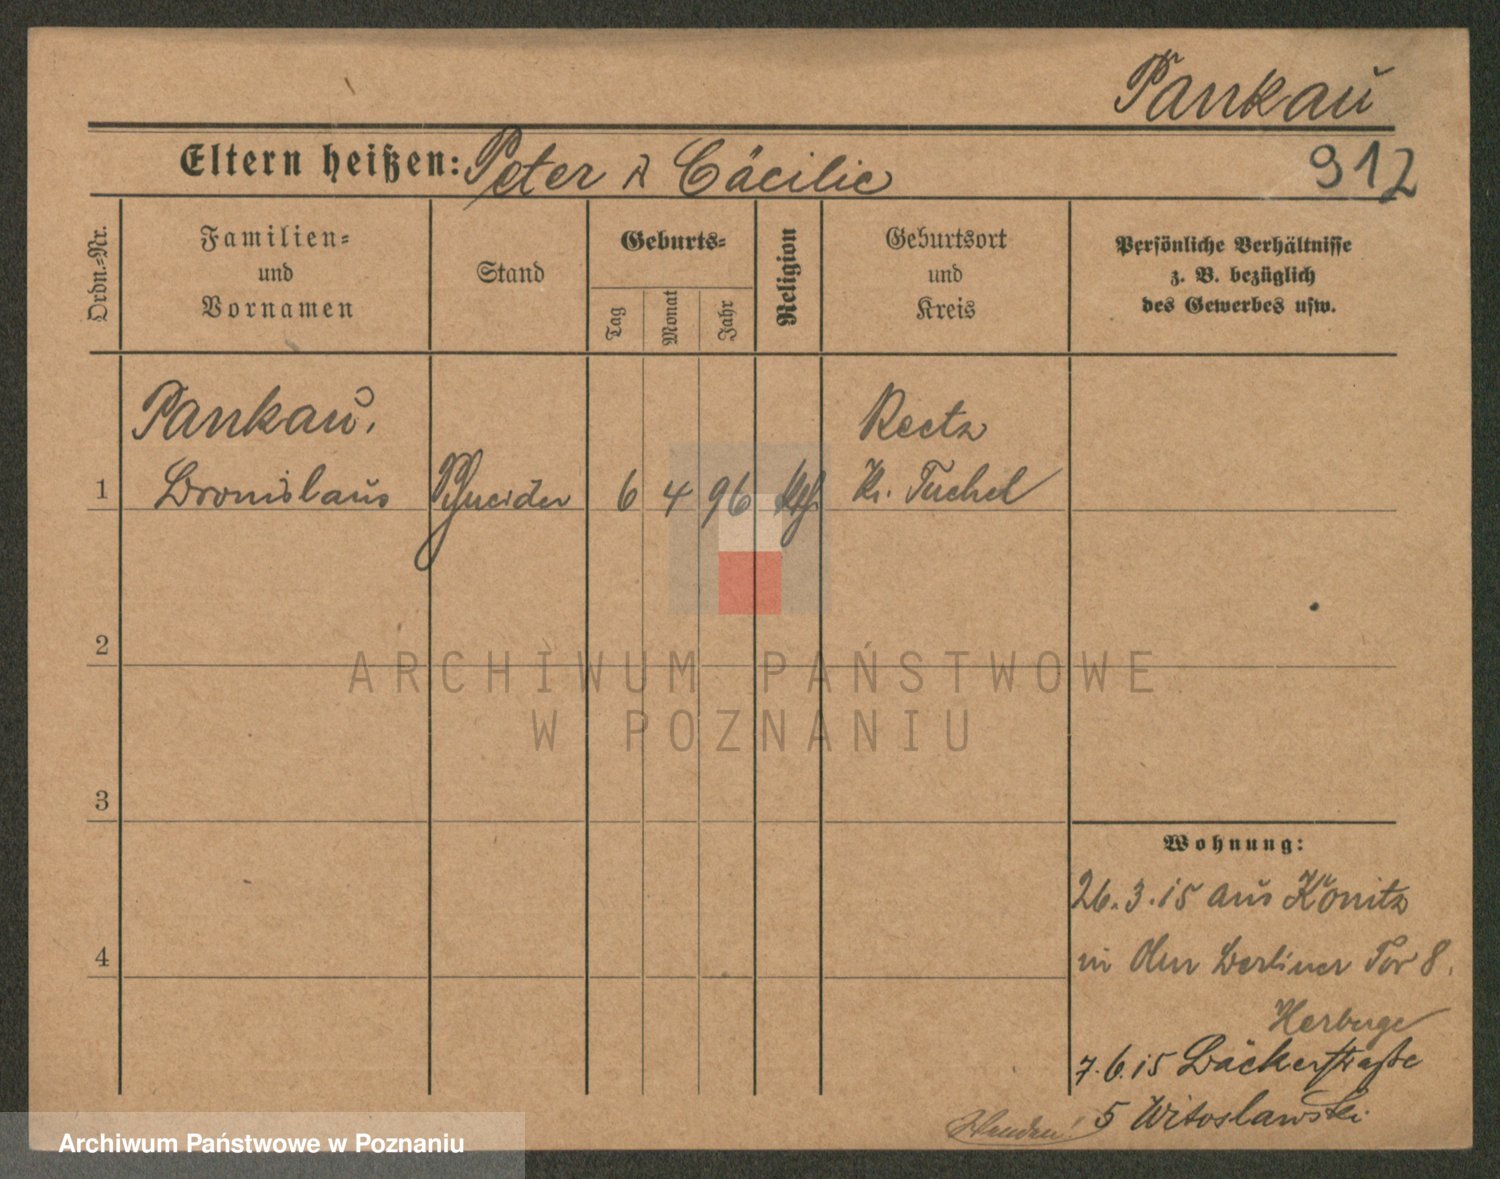 Pankau
Eltern heißen: Peter & Cäcilie
912
Ordn.-Nr.
Familien-
und
Vornamen
Stand
Geburts-
Tag
Monat
Jahr
Religion
Geburtsort
und
Kreis
Persönliche Verhältnisse
z. B. bezüglich
des Gewerbes usw.
Pankau,
Reetz
1 Bronislaus Schneider 6 4 96 kth. Kr. Tuchel
2
ARCHIWUM PAŃSTWOWE
W POZNANIU
3
Wohnung:
26.3.15 aus Konitz
4
in Am Berliner Tor 8.
Herberge
7.6.15 Bäckerstraße
5 Witoslawski
Archiwum Państwowe w Poznaniu